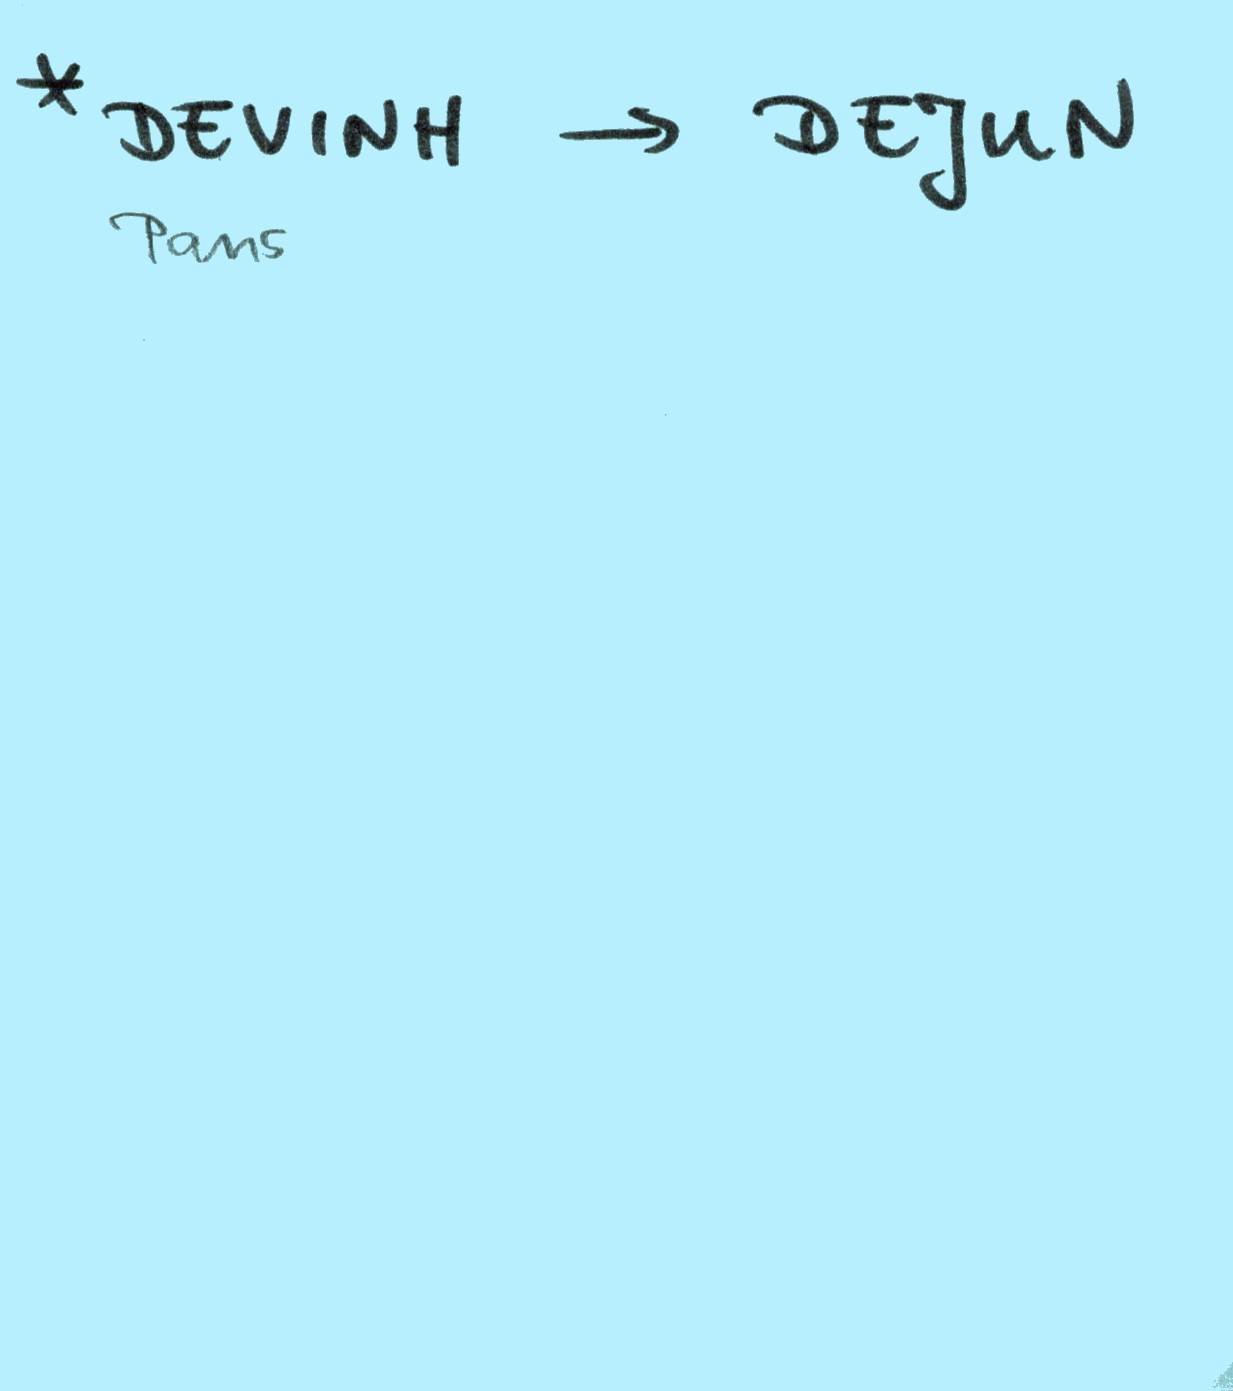 * DEVINH → DEJUN
Paris